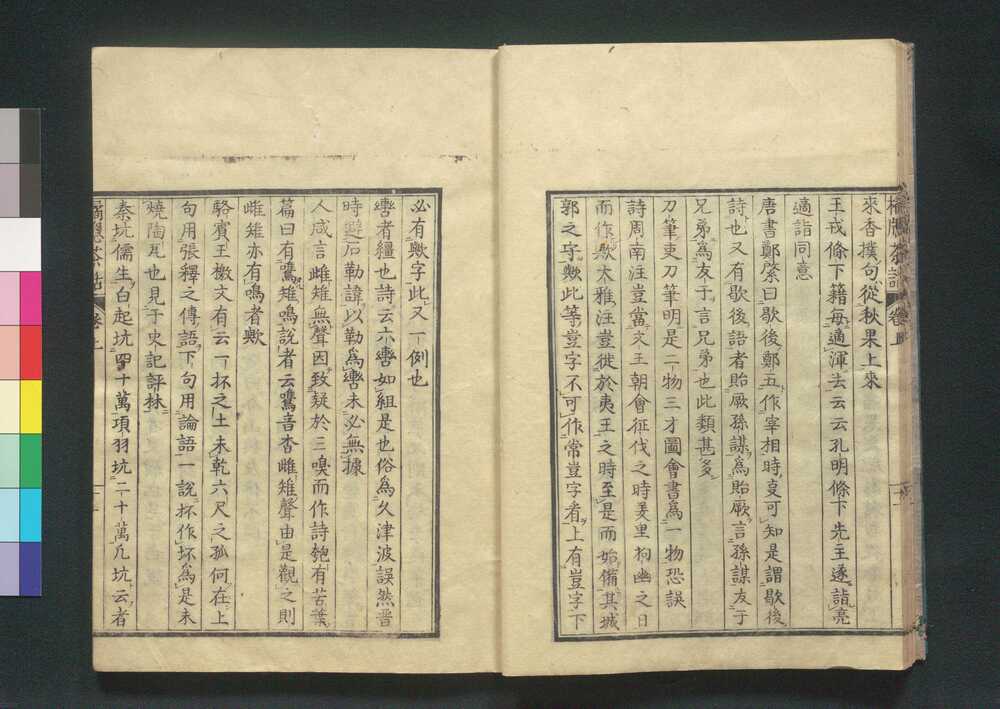 來香撲句從秋果上來
王戎條下籍每適渾去云云孔明條下先主遂詣亮
適詣同意
唐書鄭綮曰歇後鄭五作宰相時事可知是謂歇後
詩也又有歇後語者貽厥孫謀爲貽厥言孫謀友于
兄弟爲友于言兄弟也此類甚多
刀筆吏刀筆明是二物三才圖會書爲一物恐誤
詩周南注豈當文王朝會征伐之時羑里拘幽之日
而作歟大雅注豈徙於夷王之時至是而始備其城
郭之字歟此等豈字不可作常豈字者上有豈字下
必有歟字此又一例也
轡者韁也詩云六轡如組是也俗爲久津波誤然晋
時避石勒諱以勒爲轡未必無據
人咸言雌雉無聲因致疑於三嗅而作詩匏有苦葉
篇曰有鷕雉鳴說者云鷕音杳雌雉聲由是觀之則
雌雉亦有鳴者歟
駱賓王檄文有云一抔之土未乾六尺之孤何在上
句用張釋之傳語下句用論語一說抔作坏爲是未
燒陶瓦也見于史記評林
秦坑儒生白起坑四十萬項羽坑二十萬凡坑云者